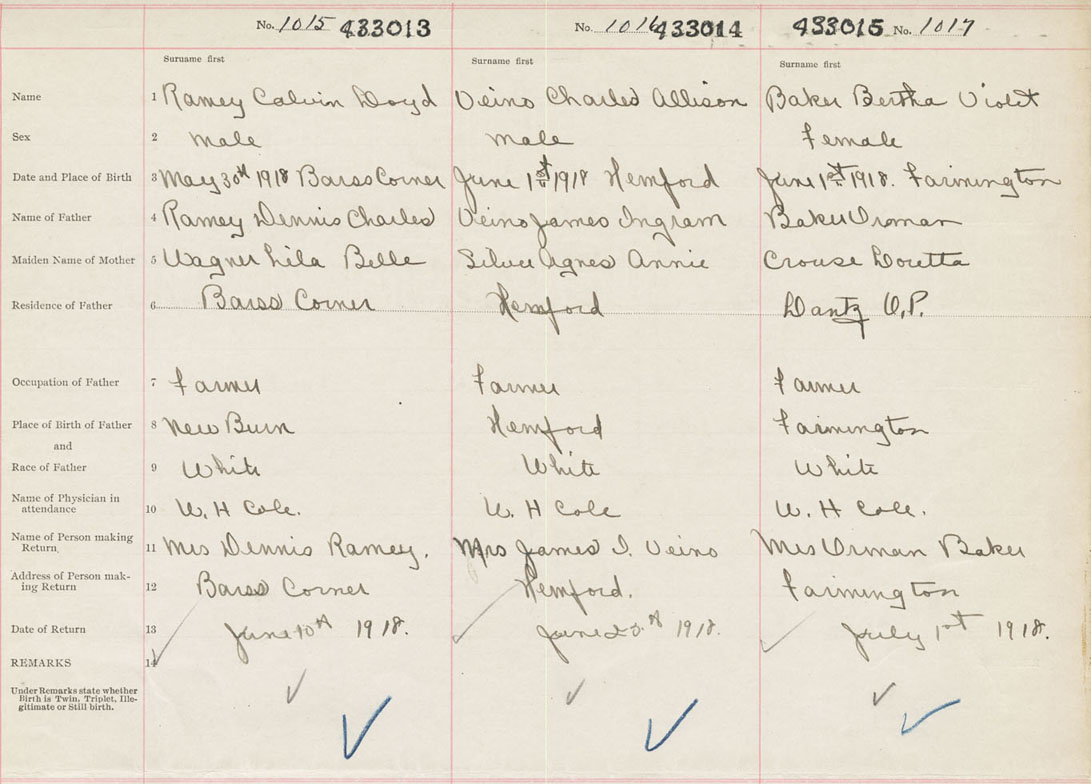 No. 1015 433013 No. 1016 433014 433015 No. 1017
Surname first Surname first Surname first
Name 1 Ramey Calvin Loyd Veino Charles Allison Baker Bertha Violet
Sex 2 male male Female
Date and Place of Birth 3 May 30th 1918 Barss Corner June 1st 1918 Hemford June 1st 1918. Farmington
Name of Father 4 Ramey Dennis Charles Veino James Ingram Baker Orman
Maiden Name of Mother 5 Wagner Lila Belle Silver Agnes Annie Crouse Loretta
Residence of Father 6 Barss Corner Hemford Lantz O.P.
Occupation of Father 7 Farmer Farmer Farmer
Place of Birth of Father 8 New Burn Hemford Farmington
and
Race of Father 9 White White White
Name of Physician in
attendance 10 W. H Cole. W. H Cole W. H Cole.
Name of Person making
Return. 11 Mrs Dennis Ramey. Mrs James I. Veino Mrs Orman Baker
Address of Person mak-
ing Return 12 Barss Corner Hemford. Farmington
Date of Return 13 June 10th 1918. June 1918. July 1st 1918.
REMARKS 14
Under Remarks state whether
Birth is Twin, Triplet, Ille-
gitimate or Still birth.